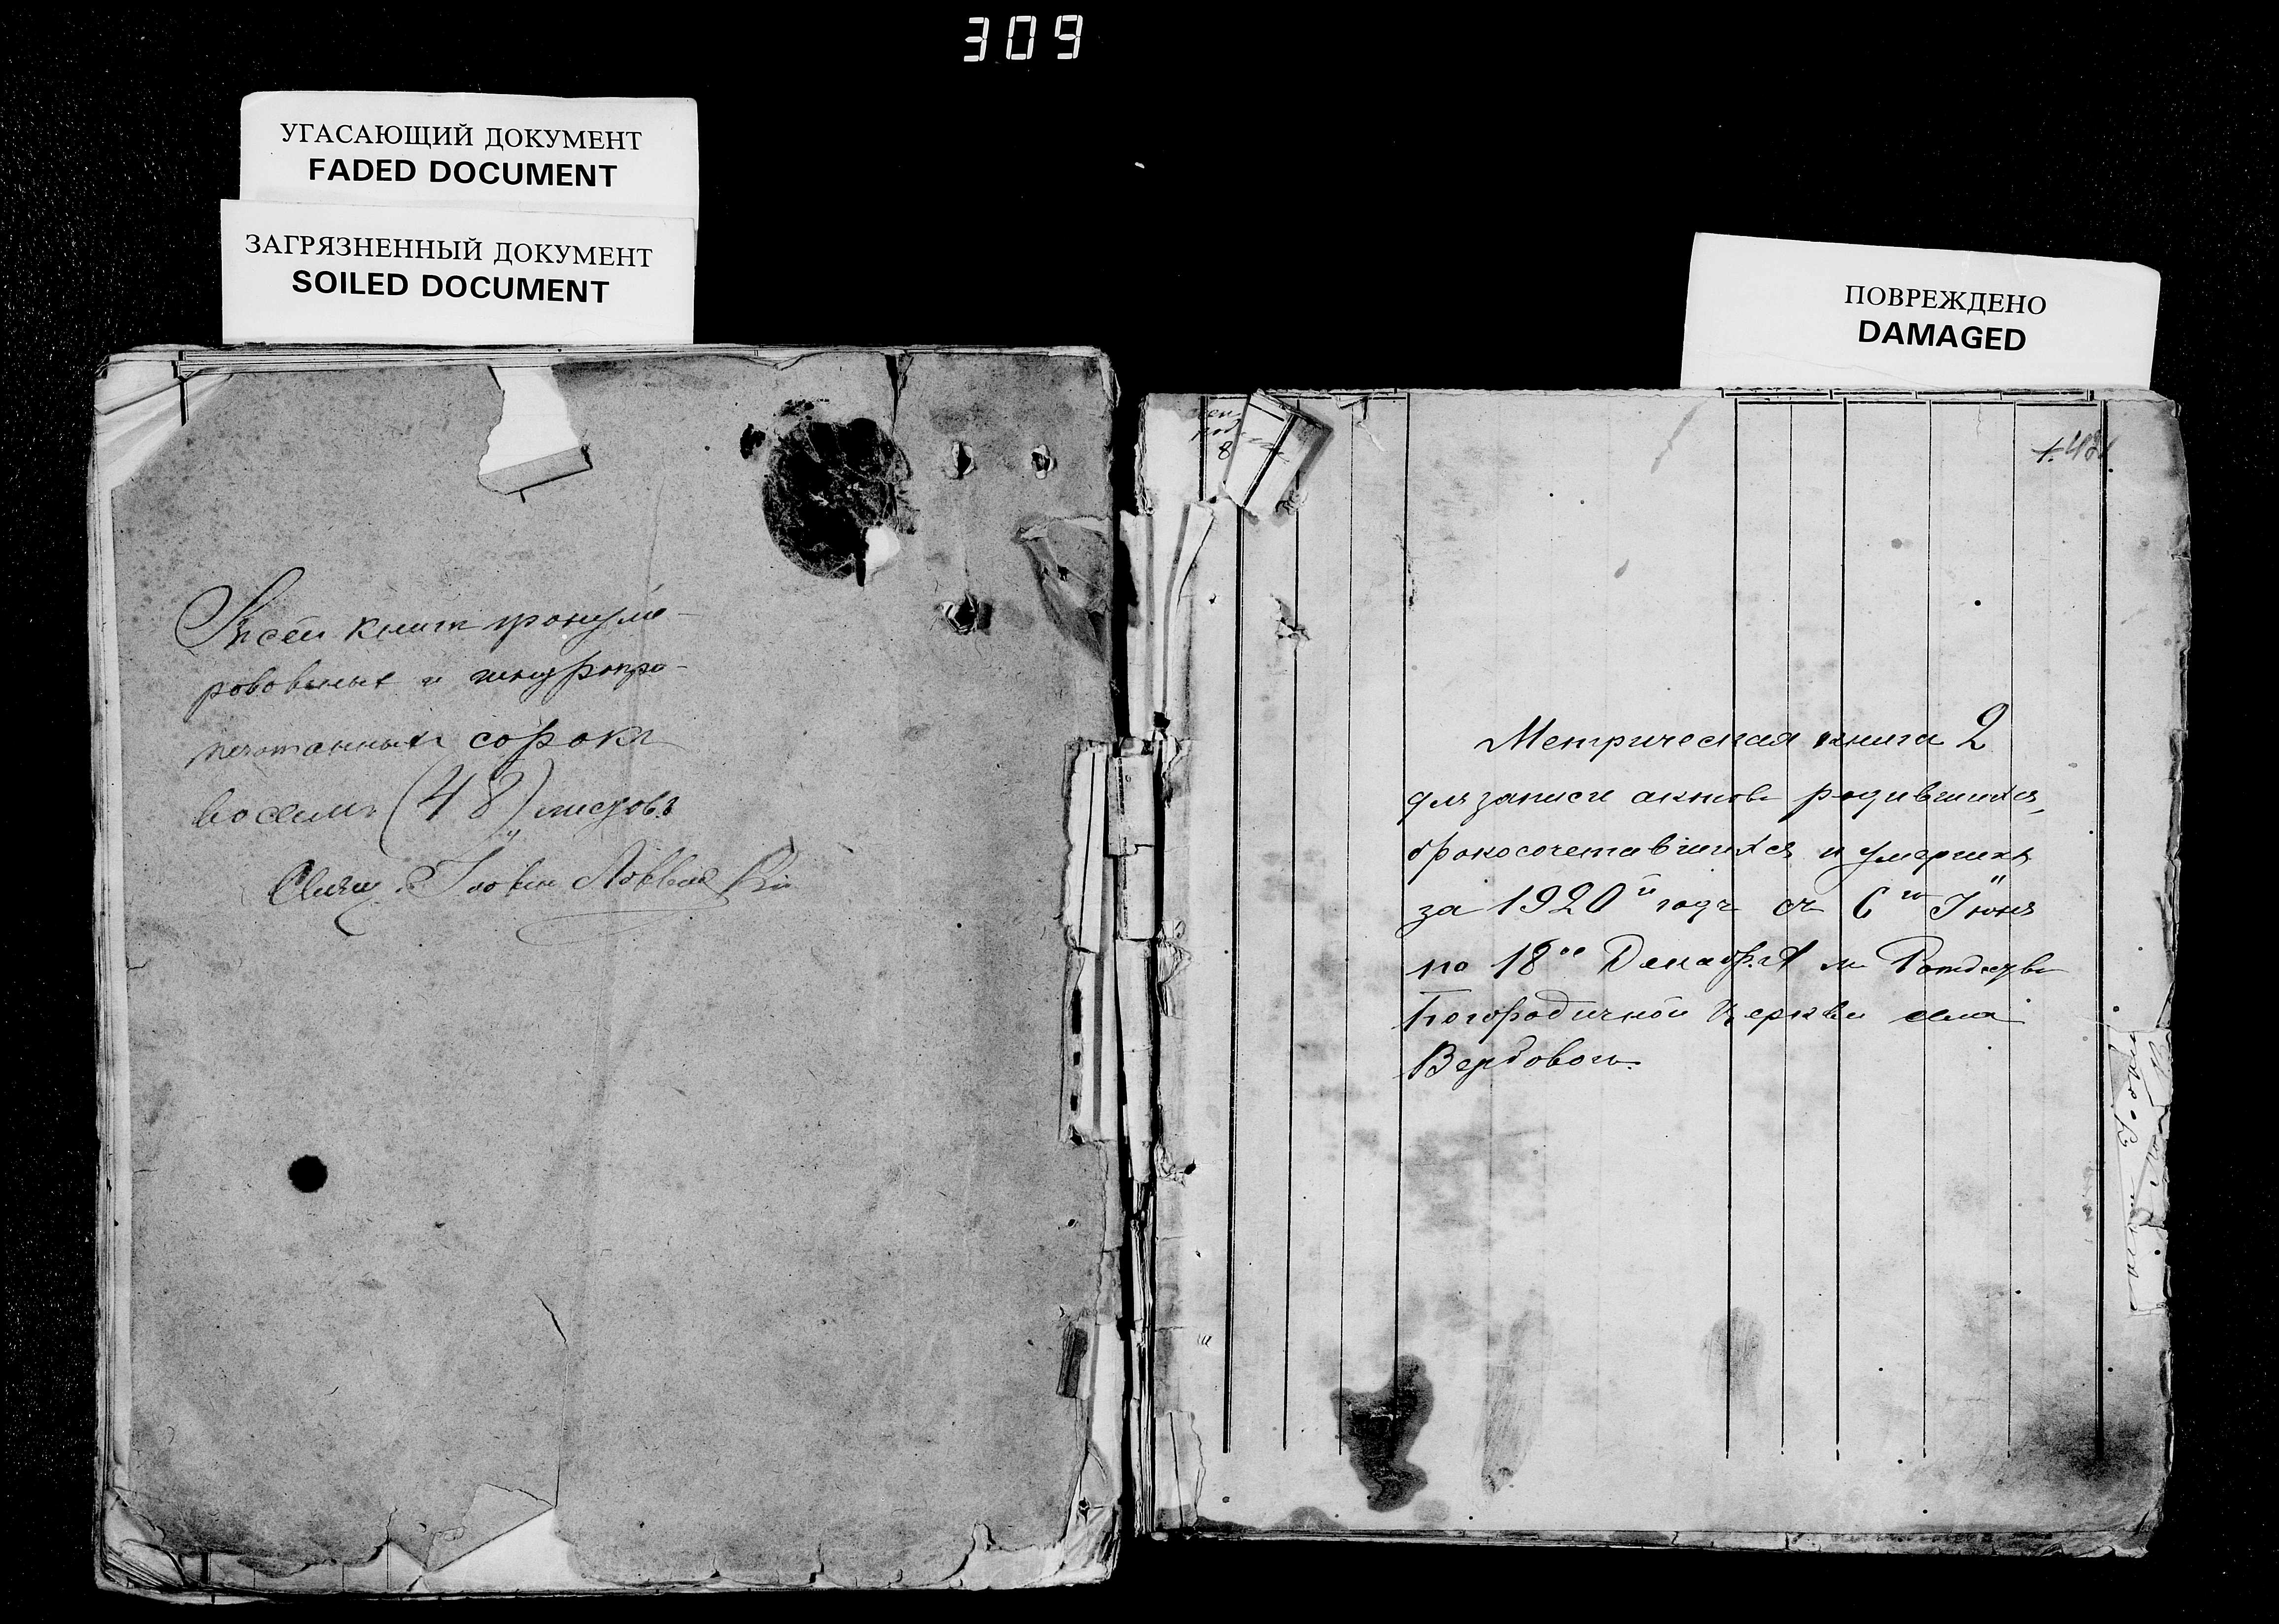 309
УГАСАЮЩИЙ ДОКУМЕНТ
FADED DOCUMENT
ЗАГРЯЗНЕННЫЙ ДОКУМЕНТ
SOILED DOCUMENT
ПОВРЕЖДЕНО
DAMAGED
Всей книги пронуме-
рованныхъ и шнуропро-
печатанныхъ сорокъ
восемь (48) листовъ
Свящ. Іоаннъ
Метрическая книга 2
для записи актовъ родившихся,
бракосочетавшихся и умершихъ
за 1920й годъ съ 6го Іюня
по 18ое Декабря м. Рождество
Богородичной Церкви села
Вербового.